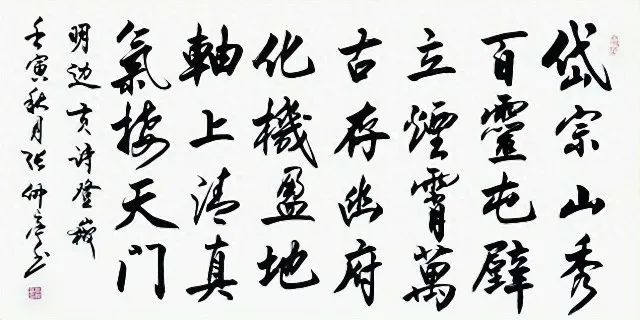 岱宗山秀
百靈屯壁
立煙霄萬
古存幽府
化機盈地
軸上清真
氣接天門
明边贡诗登嶽
壬寅秋月张仲亭书